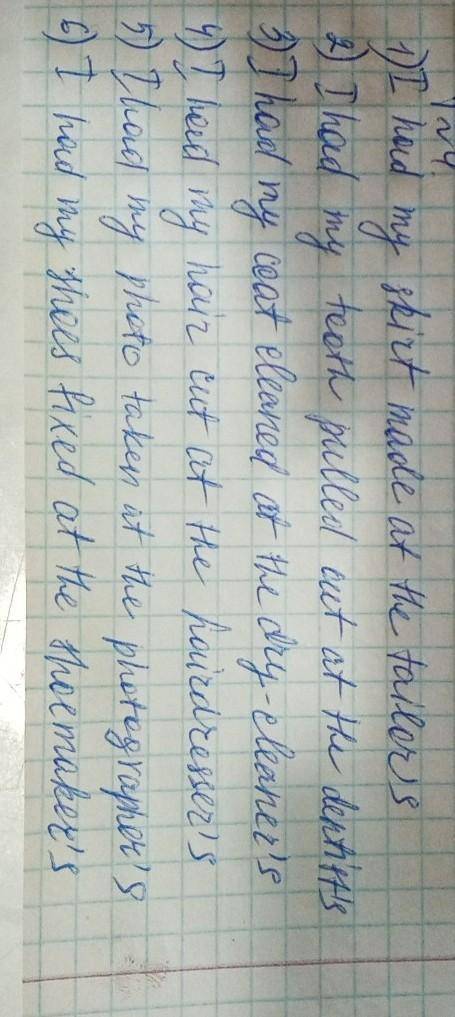 №4.
1) I had my skirt made at the tailor's
2) I had my tooth pulled out at the dentist's
3) I had my coat cleaned at the dry-cleaner's
4) I had my hair cut at the hairdresser's
5) I had my photo taken at the photographer's
6) I had my shoes fixed at the shoemaker's